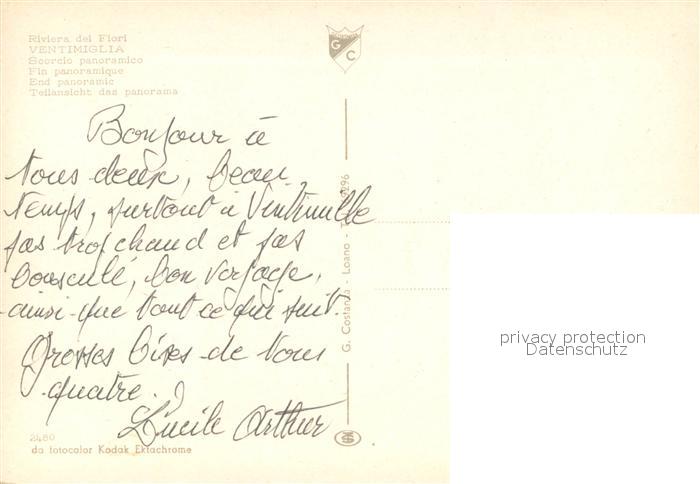 Riviera dei Fiori
VENTIMIGLIA
Scorcio panoramico
Fin panoramique
End panoramic
Teilansicht das panorama
G C
Bonjour à
tous deux, beau
temps, surtout à Vintimille
pas trop chaud et pas
bousculé, bon voyage,
ainsi que tout ce qui suit.
Grosses bises de tous
quatre.
Lucile Arthur
G. Costanza - Loano -
privacy protection
Datenschutz
2480
da fotocolor Kodak Ektachrome